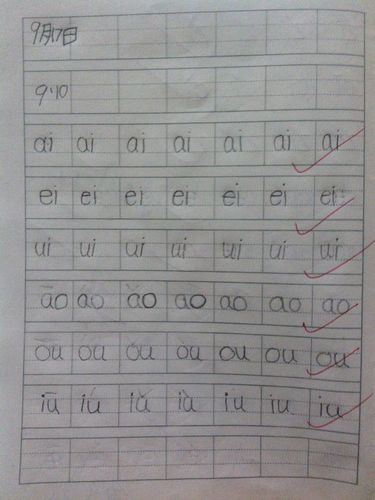 9月17日
9.10
ai ai ai ai ai ai ai
ei ei ei ei ei ei ei
ui ui ui ui ui ui ui
āo áo ǎo ào ao ao ao
ōu óu ǒu òu ou ou ou
iū iú iǔ iù iu iu iu